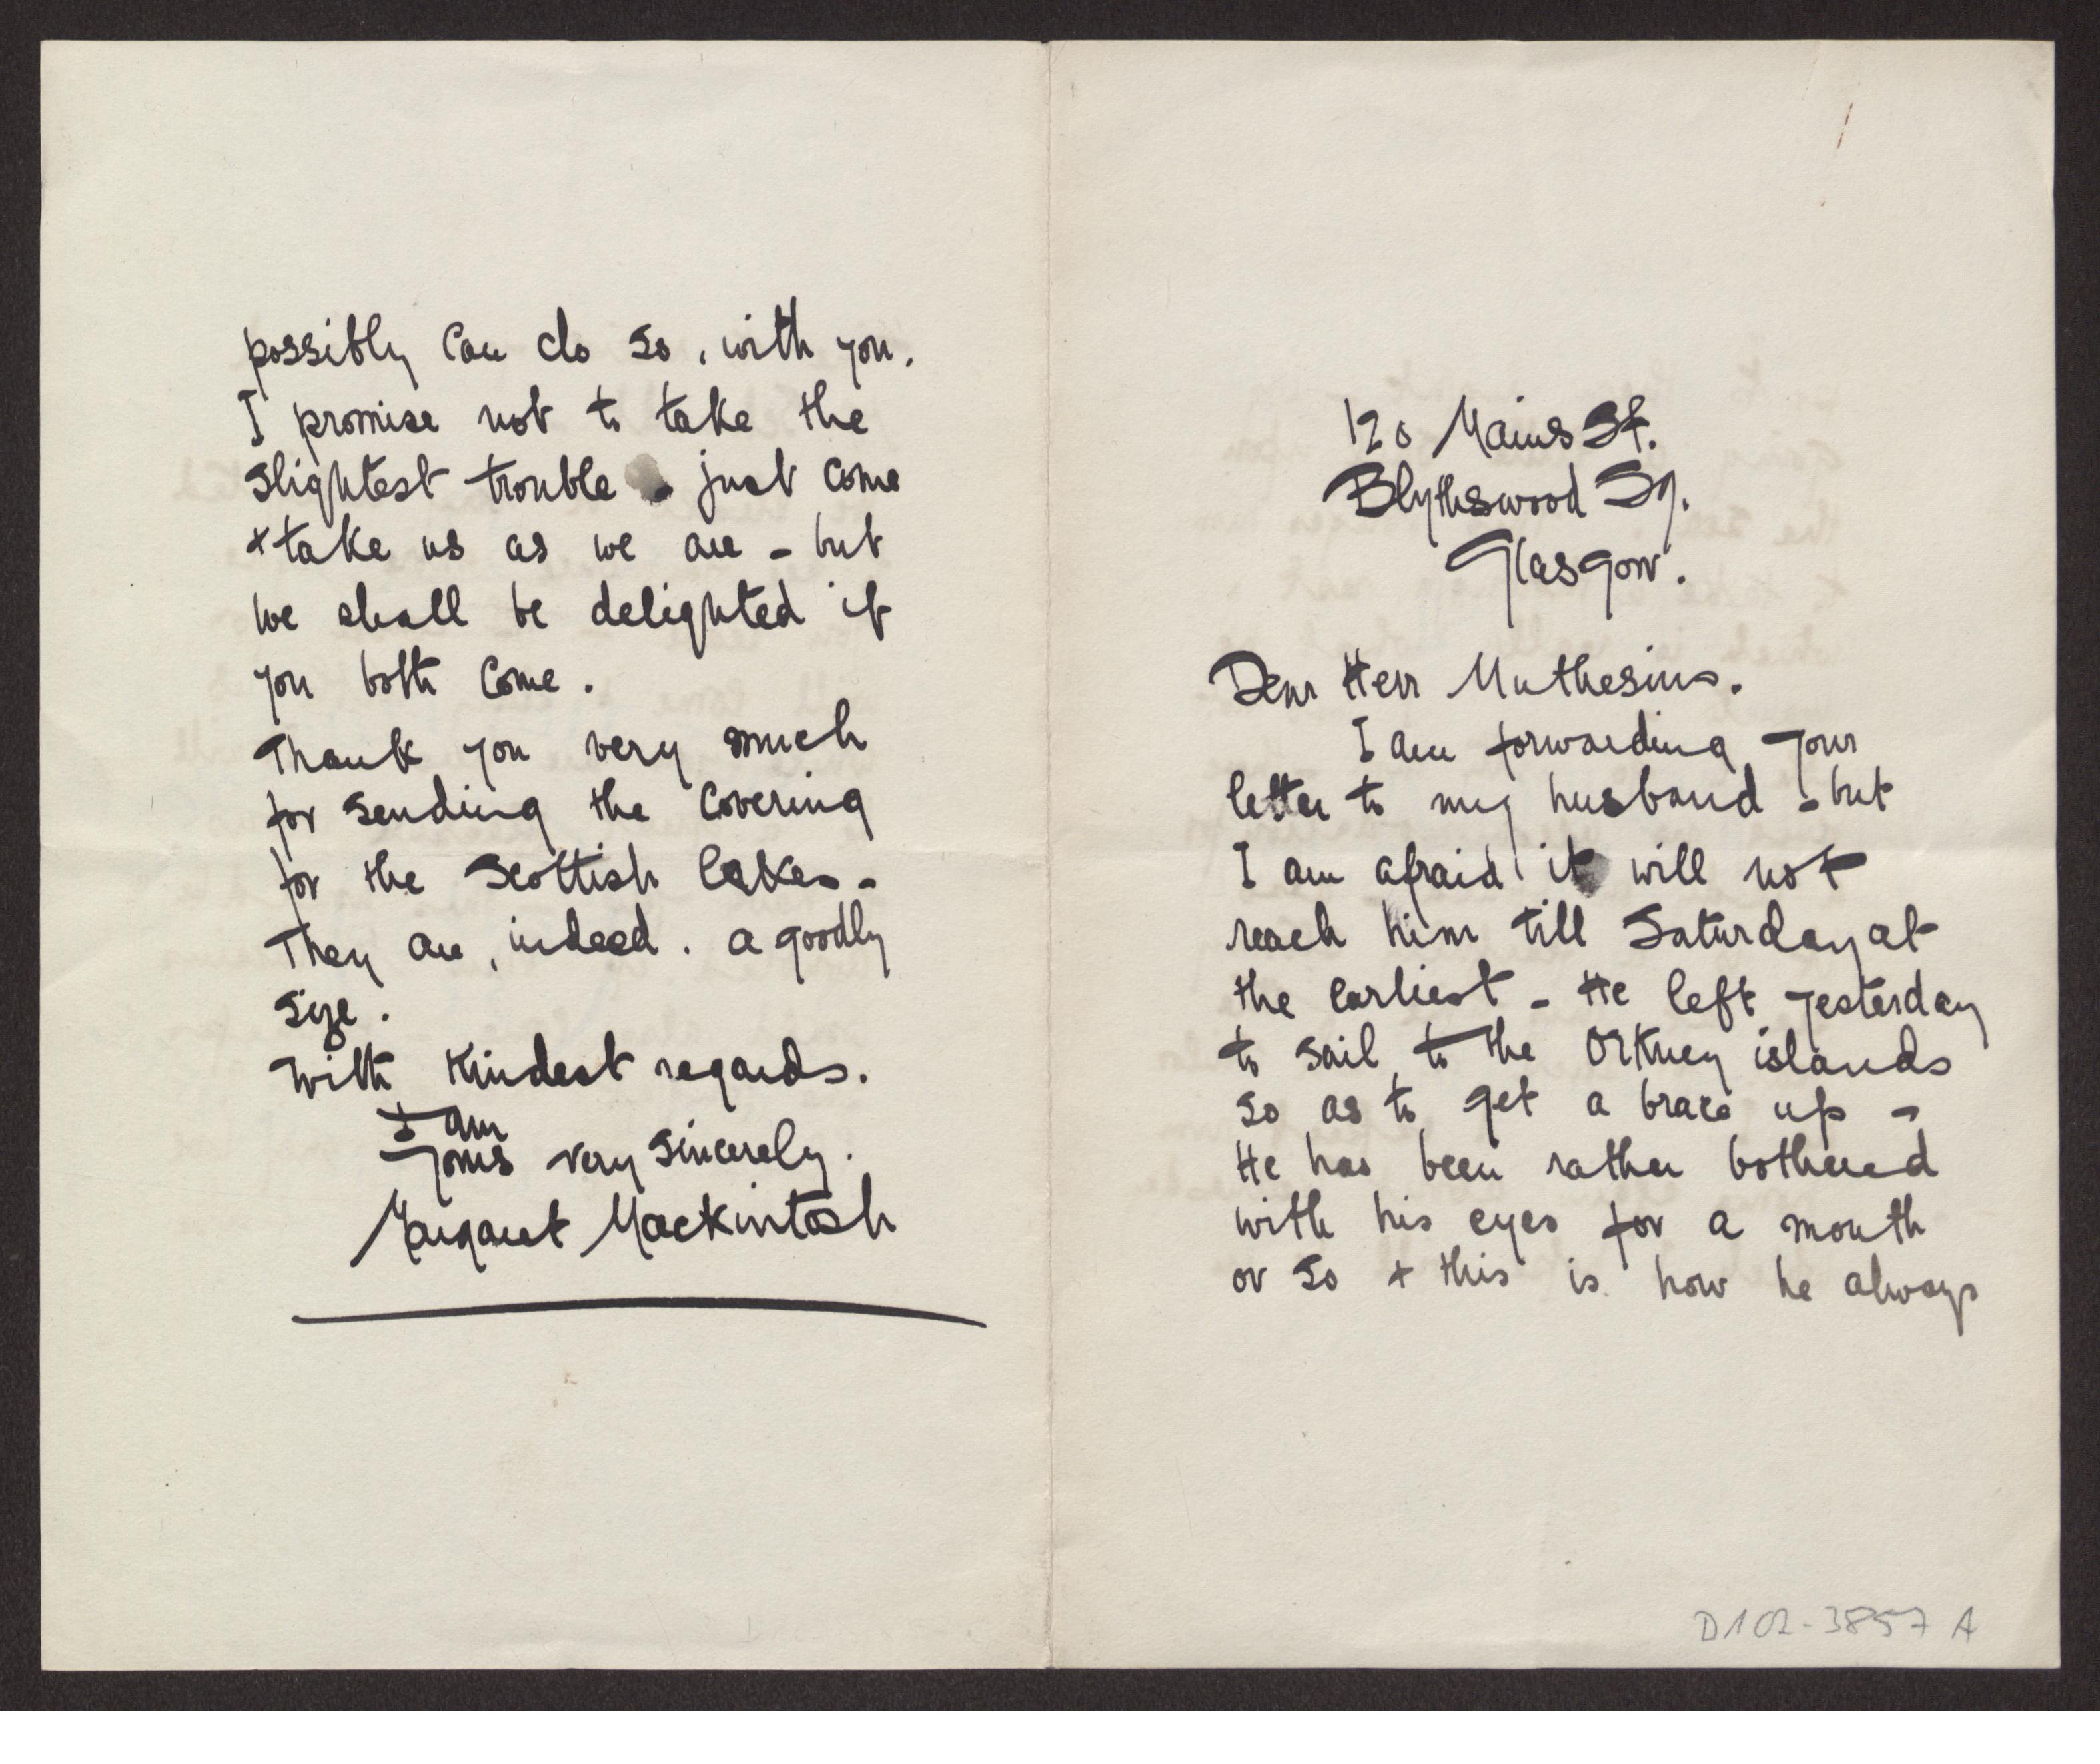 120 Mains St.
Blythswood Sq.
Glasgow.
Dear Herr Muthesius.
I am forwarding your
letter to my husband - but
I am afraid it will not
reach him till Saturday at
the earliest - He left yesterday
to sail to the Orkney islands
so as to get a brace up -
He has been rather bothered
with his eyes for a month
or so + this is how he always
D102-3857 A
possibly can do so, with you.
I promise not to take the
slightest trouble - just come
+ take us as we are - but
we shall be delighted if
you both come.
Thank you very much
for sending the covering
for the Scottish Cakes -
They are, indeed. a goodly
size.
With kindest regards.
I am
Yours very sincerely.
Margaret Mackintosh